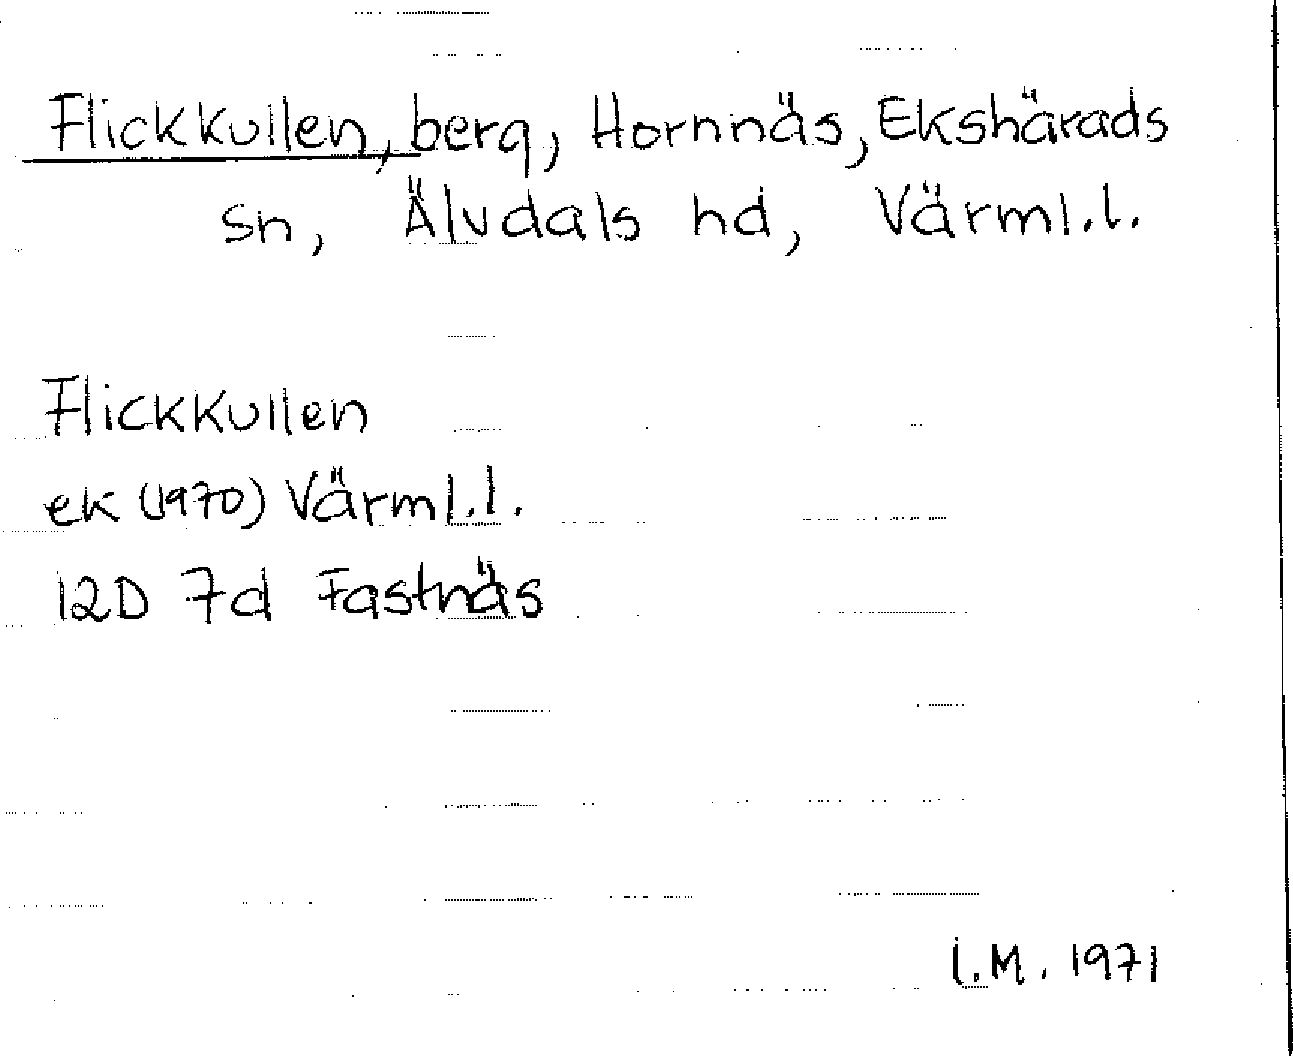 Flickkullen, berg, Hornnäs, Ekshärads
sn, Älvdals hd, Värml.l.
Flickkullen
ek (1970) Värml.l.
12D 7d Fastnäs
I.M. 1971